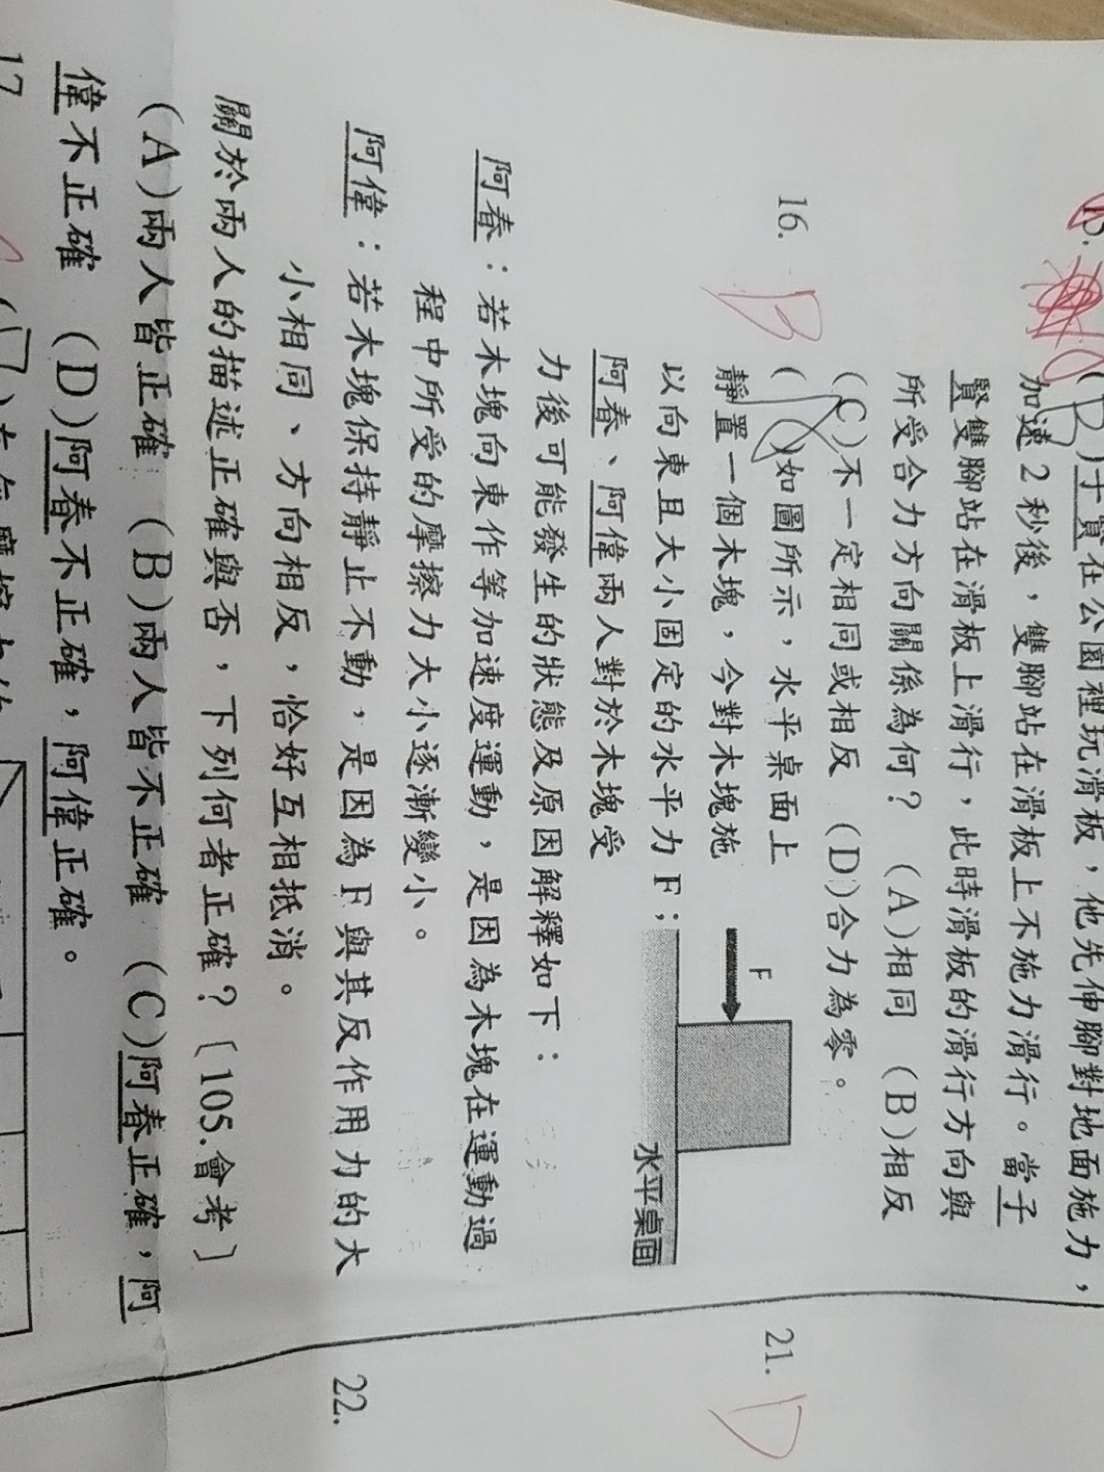 (D)子賢在公園裡玩滑板，他先伸腳對地面施力，
加速2秒後，雙腳站在滑板上不施力滑行。當子
賢雙腳站在滑板上滑行，此時滑板的滑行方向與
所受合力方向關係為何？ (A)相同 (B)相反
(C)不一定相同或相反 (D)合力為零。
16. B ( )如圖所示，水平桌面上
靜置一個木塊，今對木塊施
以向東且大小固定的水平力F；
阿春、阿偉兩人對於木塊受
力後可能發生的狀態及原因解釋如下：
F
水平桌面
阿春：若木塊向東作等加速度運動，是因為木塊在運動過
程中所受的摩擦力大小逐漸變小。
阿偉：若木塊保持靜止不動，是因為F與其反作用力的大
小相同、方向相反，恰好互相抵消。
關於兩人的描述正確與否，下列何者正確？〔105.會考〕
(A)兩人皆正確 (B)兩人皆不正確 (C)阿春正確，阿
偉不正確 (D)阿春不正確，阿偉正確。
17
21. D
22.